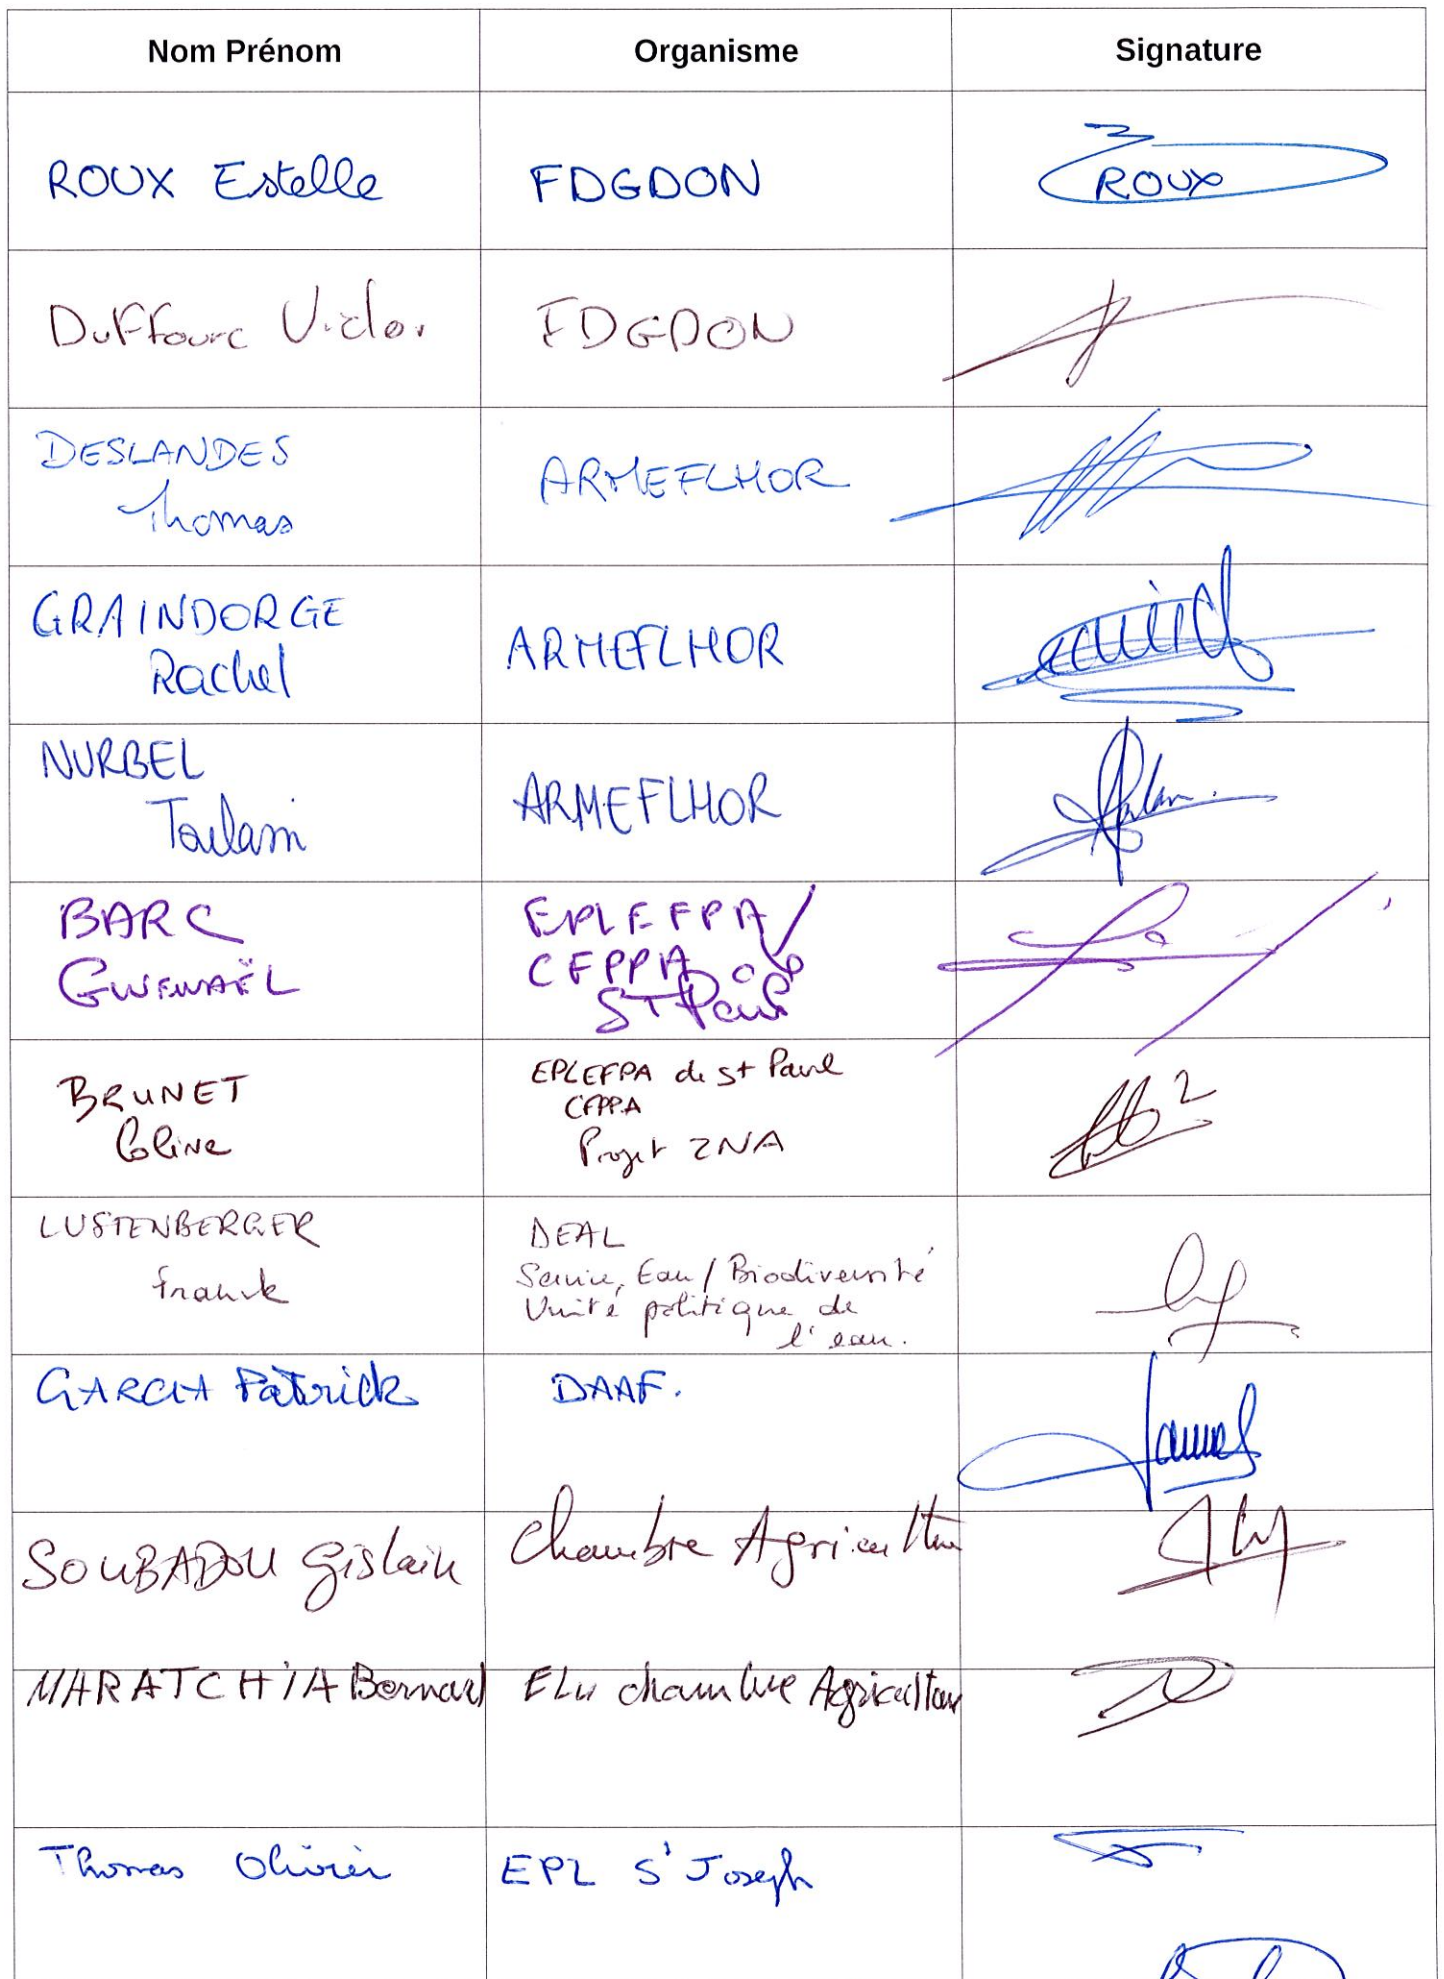 Nom Prénom Organisme Signature
ROUX Estelle FDGDON ROUX
Duffourc Victor FDGDON
DESLANDES
Thomas ARMEFLHOR
GRAINDORGE
Rachel ARMEFLHOR
NURBEL
Toulassi ARMEFLHOR
BARC EPLEFPA/
GWENAËL CFPPA
ST Paul
BRUNET EPLEFPA de St Paul
CFPPA
Coline Projet ZNA
LUSTENBERGER DEAL
Franck Service, Eau / Biodiversité
Unité politique de
l'eau.
GARCIA Patrick DAAF.
SOUBADOU Gislain Chambre Agriculture
MARATCHIA Bernard Elu chambre Agriculture
Thomas Olivier EPL St Joseph